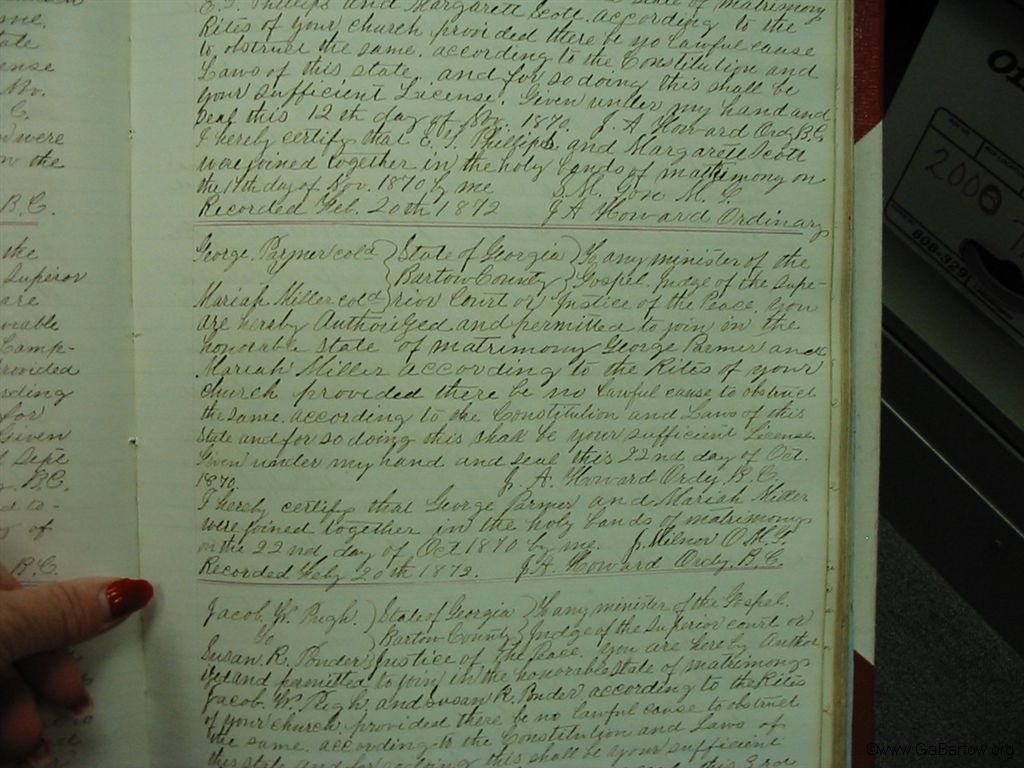 E. T. Phillips and Margarett Scott according to the
Rites of your church provided there be no lawful cause
to obstruct the same. according to the Constitution and
Laws of this state. and for so doing this shall be
your sufficient License. Given under my hand and
seal this 12th day of Nov. 1870. J. A Howard Ordy B.C.
I hereby certify that E. T. Phillips and Margarett Scott
were joined together in the holy bonds of matrimony on
the 17th day of Nov. 1870 by me M. G.
Recorded Feb. 20th 1872 J A Howard Ordinary
George Parmer cold State of Georgia To any minister of the
Bartow County Gospel. Judge of the Supe-
Mariah Miller cold rior Court or Justice of the Peace. You
are hereby Authorized and permitted to join in the
honorable state of matrimony George Parmer and
Mariah Miller according to the Rites of your
church provided there be no lawful cause to obstruct
the same. according to the Constitution and Laws of this
state and for so doing this shall be your sufficient License.
Given under my hand and seal this 22nd day of Oct.
1870. J. A. Howard Ordy. B.C.
I hereby certify that George Parmer and Mariah Miller
were joined together in the holy bands of matrimony
on the 22nd day of Oct 1870 by me. J. Milner O.M.G.
Recorded Feby 20th 1872. J. A. Howard Ordy. B.C.
Jacob. W. Pugh. State of Georgia To any minister of the Gospel.
To Bartow County Judge of the Superior court or
Susan. R. Ponder Justice of the Peace. You are hereby Author
ized and permitted to join in the honorable state of matrimony
Jacob. W. Pugh. and Susan R. Ponder according to the Rites
of your church. provided there be no lawful cause to obstruct
the same. according to the Constitution and Laws of
this state and for so doing this shall be your sufficient
ense
No.
C.
were
on the
B.C.
the
Superor
are
orable
Camp-
rovided
rding
for
Given
Sept
B.C.
of
B.C.
2000
©www.GaBartow.org